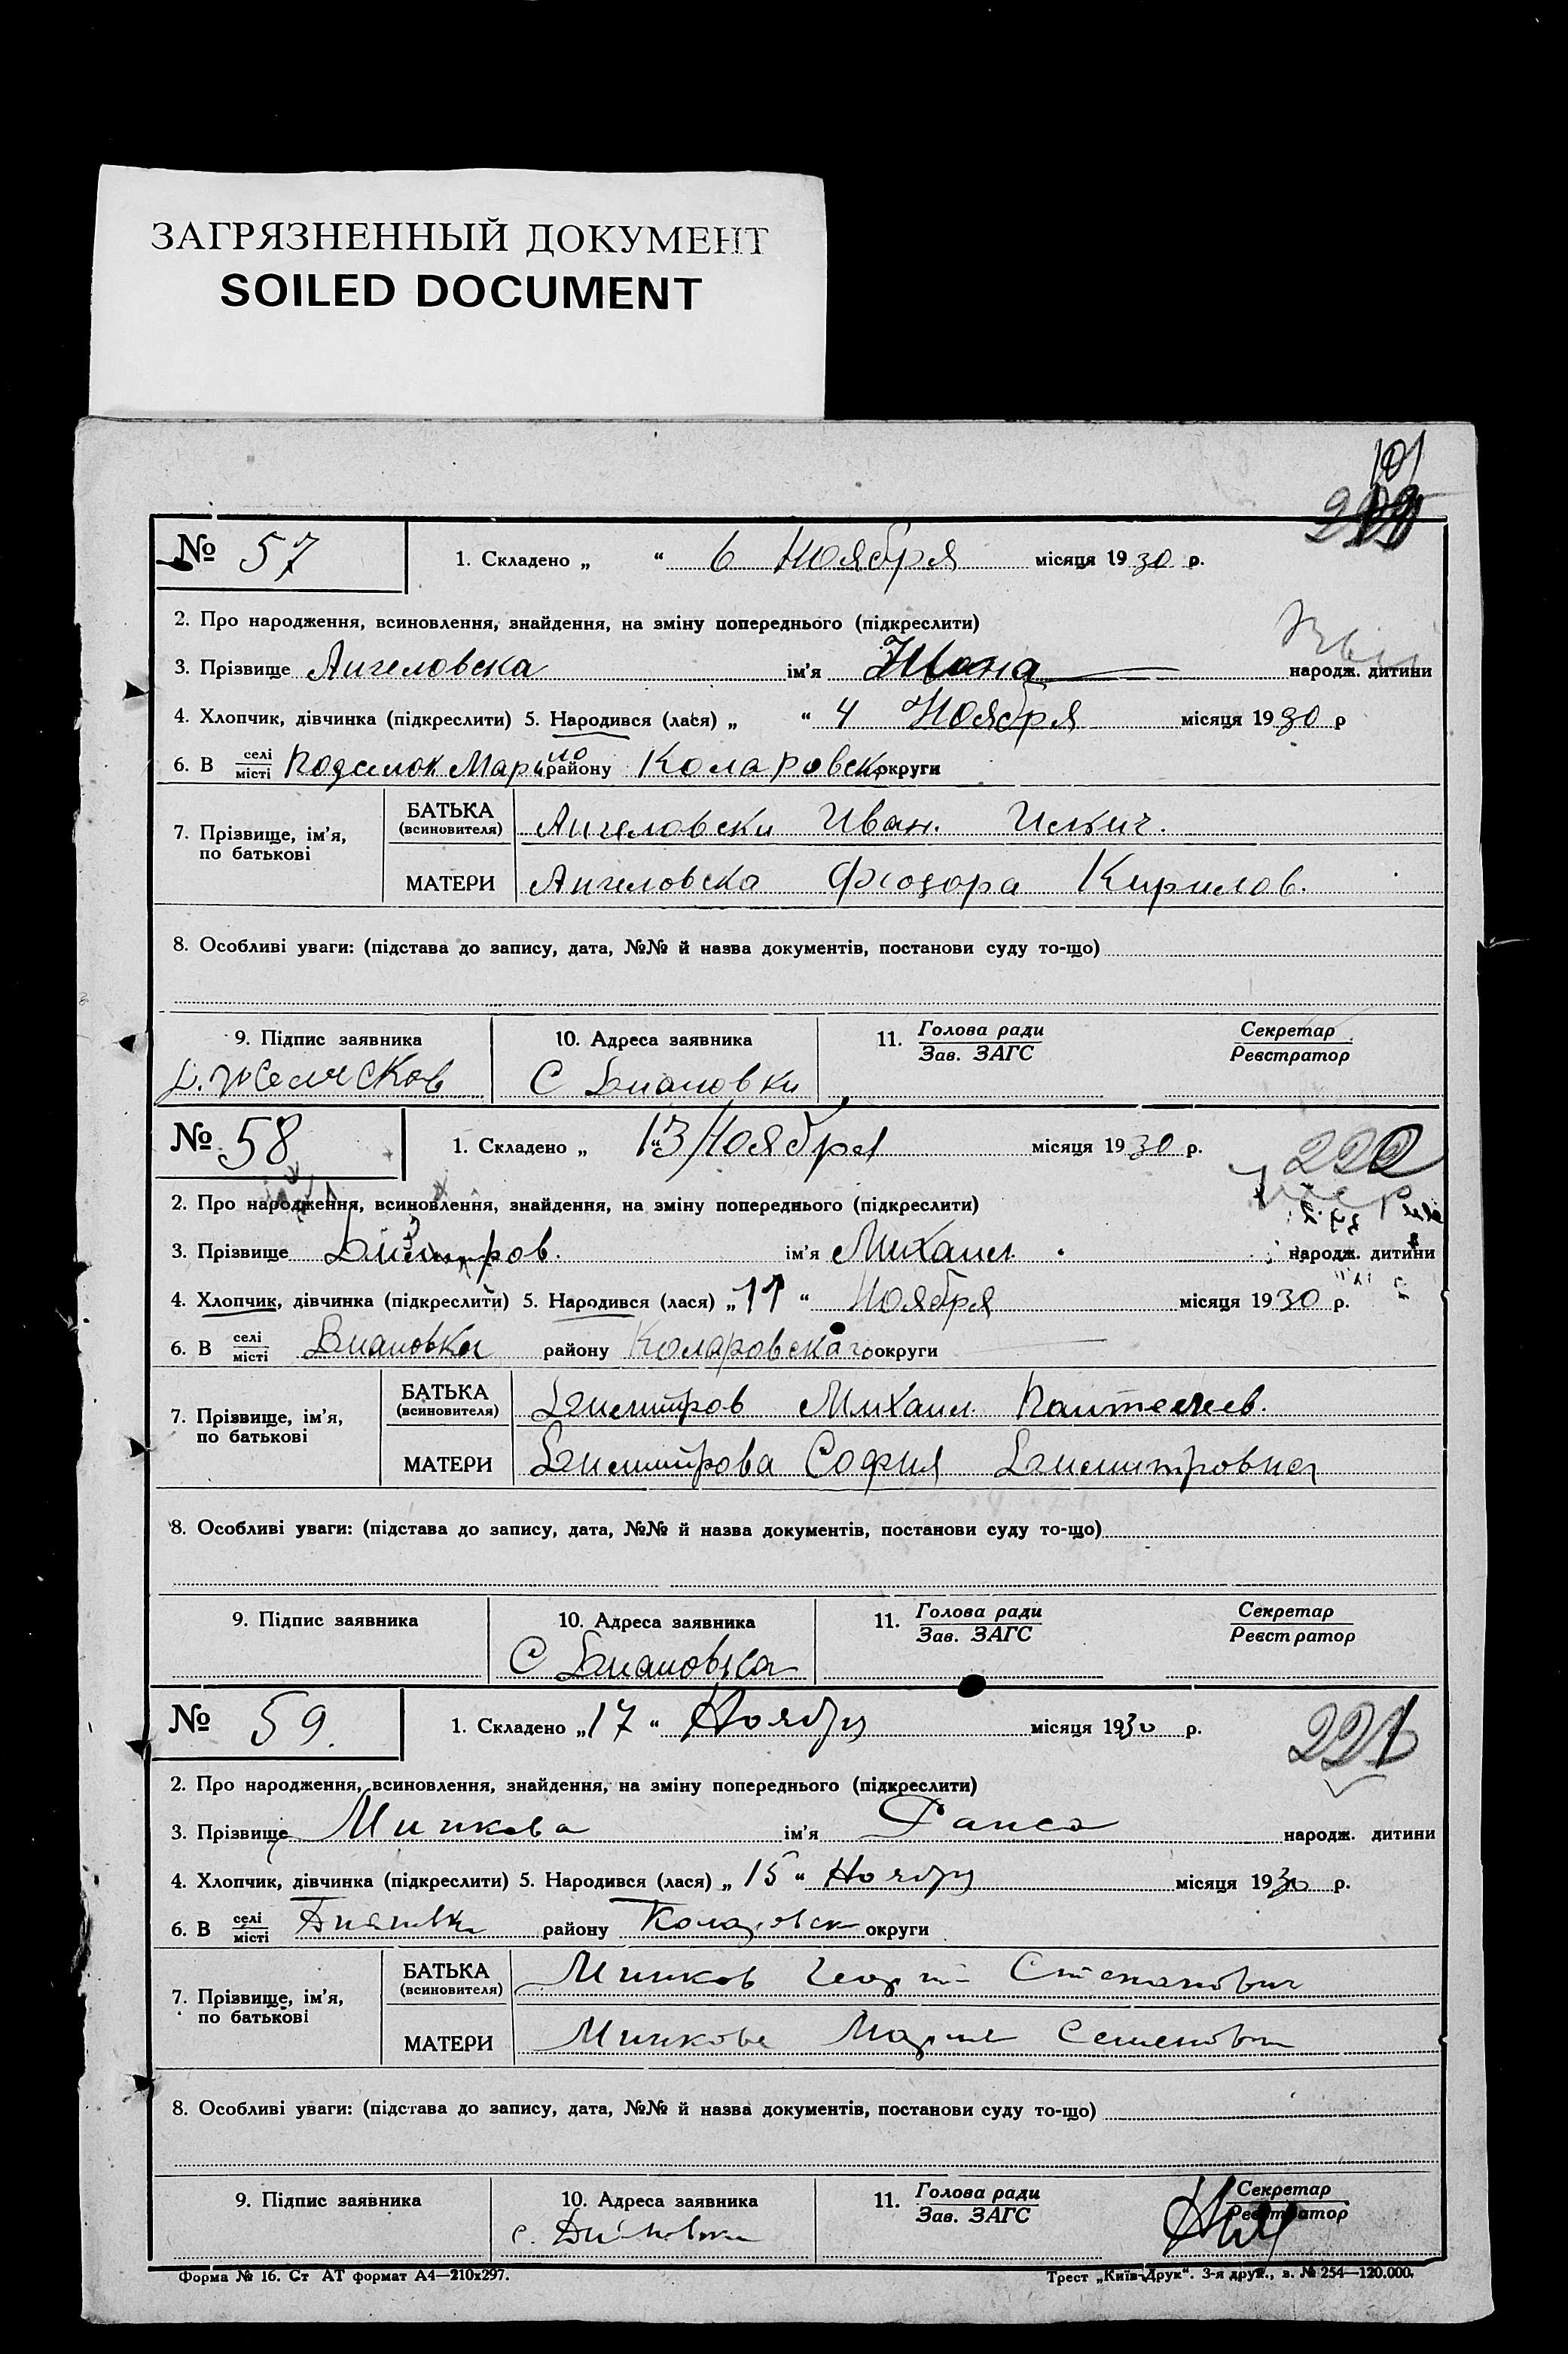 ЗАГРЯЗНЕННЫЙ ДОКУМЕНТ
SOILED DOCUMENT
101
№ 57
1. Складено „ “ 6 Ноября місяця 1930 р.
2. Про народження, всиновлення, знайдення, на зміну попереднього (підкреслити)
3. Прізвище Ангеловска ім’я народж. дитини
4. Хлопчик, дівчинка (підкреслити) 5. Народився (лася) „ “ 4 Ноября місяця 1930 р
6. В селі місті Коларовск району округи
7. Прізвище, ім’я, по батькові
БАТЬКА (всиновителя) Ангеловски Иван.
МАТЕРИ Ангеловска Феодора Кирилов.
8. Особливі уваги: (підстава до запису, дата, №№ й назва документів, постанови суду то-що)
9. Підпис заявника
10. Адреса заявника
11. Голова ради Зав. ЗАГС
Секретар Реєстратор
Д. Желясков
С Диановки
№ 58
1. Складено „ 13 “ Ноября місяця 1930 р.
220
2. Про народження, всиновлення, знайдення, на зміну попереднього (підкреслити)
3. Прізвище Димитров. ім’я Михаил. народж. дитини
4. Хлопчик, дівчинка (підкреслити) 5. Народився (лася) „ 11 “ Ноября місяця 1930 р.
6. В селі місті Диановка району Коларовскаго округи
7. Прізвище, ім’я, по батькові
БАТЬКА (всиновителя) Димитров Михаил Пантелеев.
МАТЕРИ Димитрова София Димитровна
8. Особливі уваги: (підстава до запису, дата, №№ й назва документів, постанови суду то-що)
9. Підпис заявника
10. Адреса заявника
11. Голова ради Зав. ЗАГС
Секретар Реєстратор
С Диановка
№ 59.
1. Складено „ 17 “ Ноября місяця 1930 р.
221
2. Про народження, всиновлення, знайдення, на зміну попереднього (підкреслити)
3. Прізвище Минкова ім’я Раиса народж. дитини
4. Хлопчик, дівчинка (підкреслити) 5. Народився (лася) „ 15 “ Ноября місяця 1930 р.
6. В селі місті Диановка району Коларовск округи
7. Прізвище, ім’я, по батькові
БАТЬКА (всиновителя) Минков Георгий Степанович
МАТЕРИ Минкова Мария Семеновн
8. Особливі уваги: (підстава до запису, дата, №№ й назва документів, постанови суду то-що)
9. Підпис заявника
10. Адреса заявника
11. Голова ради Зав. ЗАГС
Секретар Реєстратор
с. Диановка
Форма № 16. Ст АТ формат А4—210х297.
Трест „Київ-Друк“. 3-я друк., з. № 254—120.000.